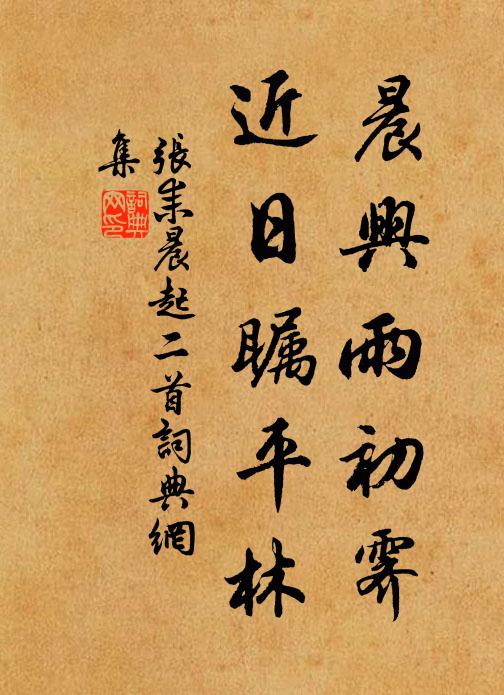 晨興雨初霽
近日矚平林
張耒晨起二首詞典網
集
詞典
网印